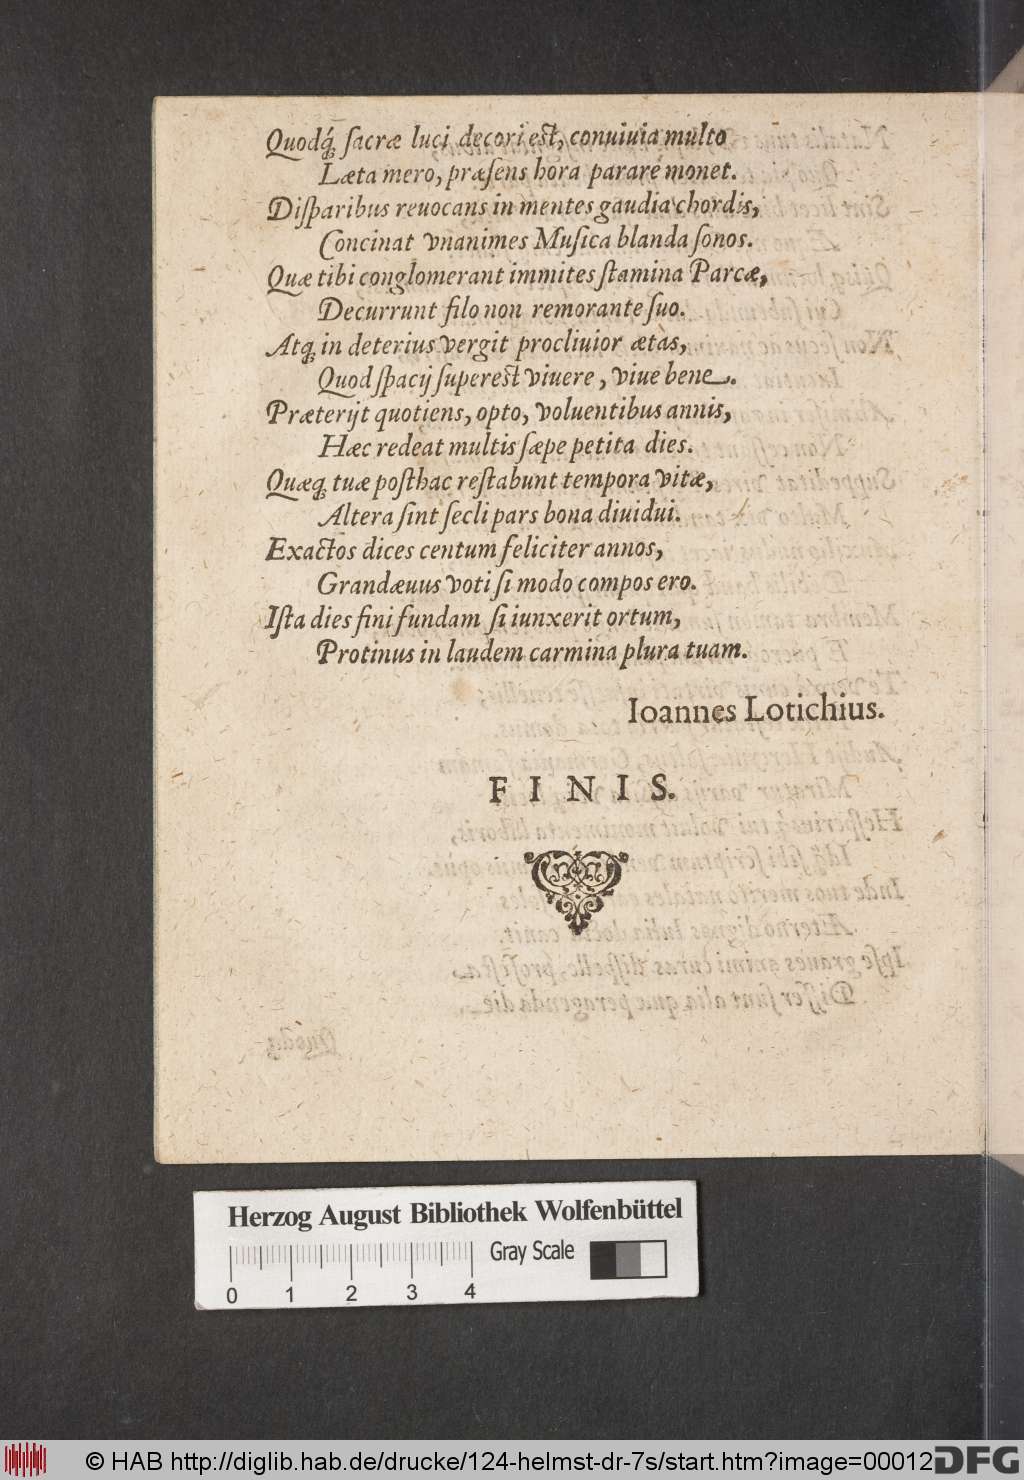 Quodq́; sacræ luci decori est, conuiuia multo
Læta mero, præsens hora parare monet.
Disparibus reuocans in mentes gaudia chordis,
Concinat vnanimes Musica blanda sonos.
Quæ tibi conglomerant immites stamina Parcæ,
Decurrunt filo non remorante suo.
Atq; in deterius vergit procliuior ætas,
Quod spacij superest viuere, viue bene.
Præterijt quotiens, opto, voluentibus annis,
Hæc redeat multis sæpe petita dies.
Quæq; tuæ posthac restabunt tempora vitæ,
Altera sint secli pars bona diuidui.
Exactos dices centum feliciter annos,
Grandæuus voti si modo compos ero.
Ista dies fini fundam si iunxerit ortum,
Protinus in laudem carmina plura tuam.
Ioannes Lotichius.
FINIS.
Herzog August Bibliothek Wolfenbüttel
Gray Scale
0 1 2 3 4
© HAB http://diglib.hab.de/drucke/124-helmst-dr-7s/start.htm?image=00012
DFG